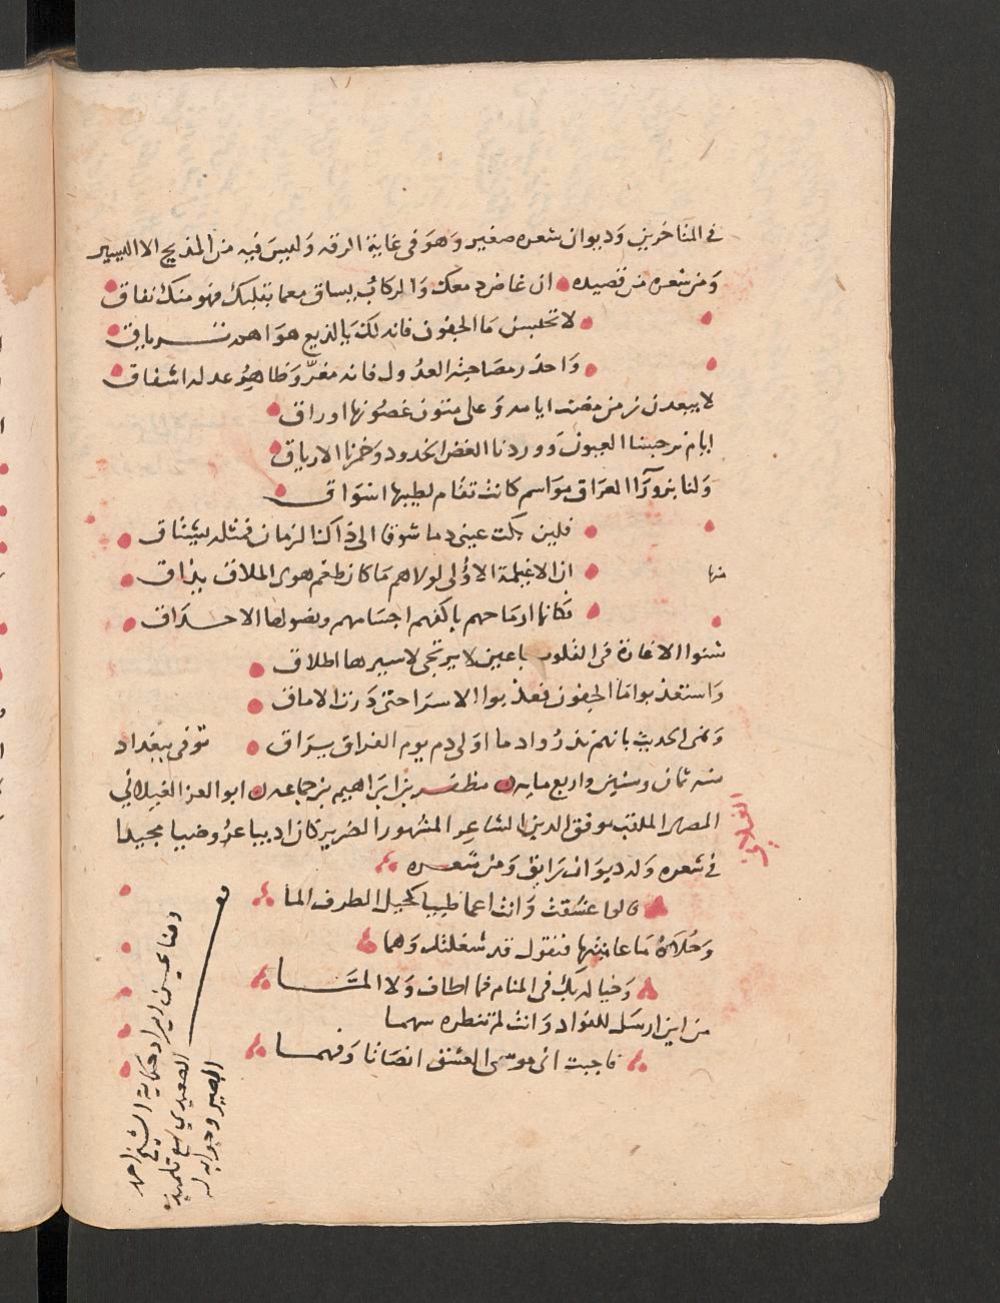 في المتاخرين وديوان شعره صغير وهو في غاية الرقه وليس فيه من المديح الا اليسير
ومن شعره من قصيده ان غاض دمعك والركاب يساق مع ما بقلبك فهو منك نفاق
لا تحبسن ما الجفون فانه لك يا لذيع هواهم ترياق
واحذر مصاحبة العذول فانه مغر وظاهر عذله اشفاق
لا يبعدن زمن مضت ايامه وعلى متون غصونها اوراق
ايام نرجسنا العيون ووردنا الغض الخدود وخمرنا الارياق
ولنا بزورآا العراق مواسم كانت تقام لطيبها اسواق
فلين بكت عيني دما شوقا الى ذاك الزمان فمثله يشتاق
منها ان الاغيلمة الاولى لولاهم ما كان طعم هوى الملاق يذاق
فكانما ارماحهم باكفهم اجسامهم ونصولها الاحداق
شنوا الاغارة في القلوب باعين لا يرتجى لاسيرها اطلاق
واستعذبوا ما الجفون فعذبوا الاسرا حتى درت الاماق
ونمى الحديث بانهم نذروا دما اولى دم يوم الفراق يراق توفى ببغداد
سنه ثمان وستين واربع مايه مظفر بن ابراهيم بن جماعه ابو العز الغيلاني
المصري الملقب موفق الدين الشاعر المشهور الضرير كان اديبا عروضيا مجيدا
في شعره وله ديوان رايق ومن شعره
قالوا عشقت وانت اعما ظبيا كحيل الطرف الما
وحلاه ما عاينتها فنقول قد شغلتك وهما
وخياله بك في المنام فما اطاف ولا الما
من اين ارسل للفواد وانت لم تنظره سهما
فاجبت اني موسوى العشق انصاتا وفهما
وهنا يحسن ايراد حكاية الشيخ احمد
الصعيدي مع تلميذه
البصير وجوابه له